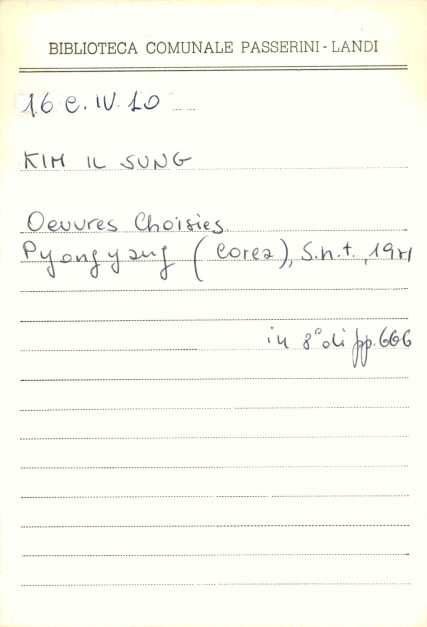 BIBLIOTECA COMUNALE PASSERINI-LANDI
16 C.IV.10
KIM IL SUNG
Oeuvres Choisies.
Pyongyang (Corea), S.n.t., 1971
in 8° di pp.666